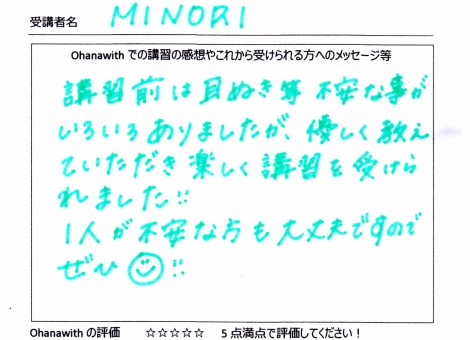 受講者名 MINORI
Ohanawith での講習の感想やこれから受けられる方へのメッセージ等
講習前は耳ぬき等不安な事が
いろいろありましたが、優しく教え
ていただき楽しく講習を受けら
れました!!
1人が不安な方も大丈夫ですので
ぜひ☺!!
Ohanawith の評価 ☆☆☆☆☆ 5点満点で評価してください!